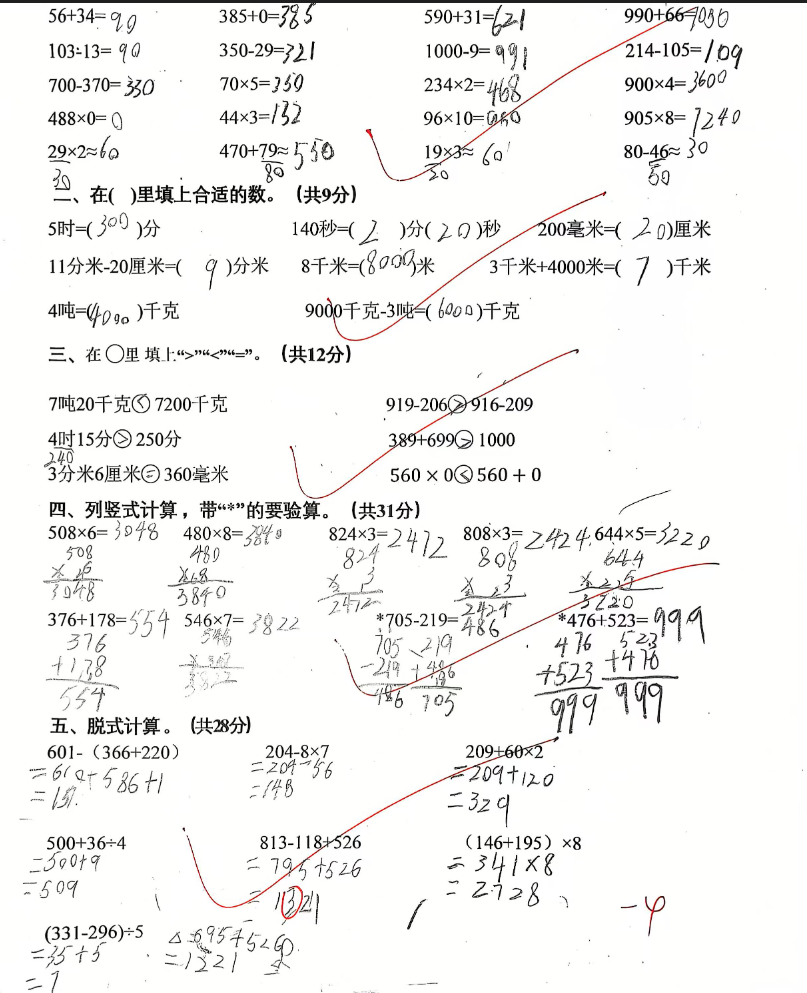 56+34=90 385+0=385 590+31=621 990+66=1056
103-13=90 350-29=321 1000-9=991 214-105=109
700-370=330 70×5=350 234×2=468 900×4=3600
488×0=0 44×3=132 96×10=960 905×8=7240
29×2≈60 470+79≈550 19×3≈60 80-46≈30
30 80 20 50
二、在( )里填上合适的数。（共9分）
5时=(300)分 140秒=(2)分(20)秒 200毫米=(20)厘米
11分米-20厘米=(9)分米 8千米=(8000)米 3千米+4000米=(7)千米
4吨=(4000)千克 9000千克-3吨=(6000)千克
三、在○里填上“>”“<”“=”。（共12分）
7吨20千克<7200千克 919-206>916-209
4时15分>250分 389+699>1000
240
3分米6厘米=360毫米 560×0<560+0
四、列竖式计算，带“*”的要验算。（共31分）
508×6=3048 480×8=3840 824×3=2472 808×3=2424 644×5=3220
508 480 824 808 644
3048 3840 2472 2424 3220
376+178=554 546×7=3822 *705-219=486 *476+523=999
376 546 705 219 476 523
-219 +486 +523 +476
554 3822 486 705 999 999
五、脱式计算。（共28分）
601-（366+220） 204-8×7 209+60×2
=204-56 =209+120
=148 =329
500+36÷4 813-118+526 （146+195）×8
=500+9 =795+526 =341×8
=509 =1321 =2728
-4
(331-296)÷5 695+526
=35÷5 =1221
=7